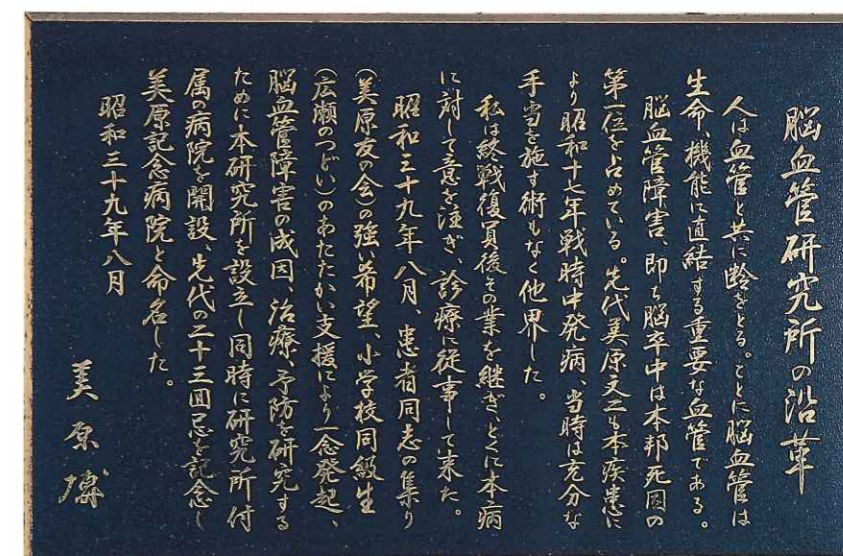 脳血管研究所の沿革
人は血管と共に齢をとる。ことに脳血管は
生命、機能に直結する重要な血管である。
脳血管障害、即ち脳卒中は本邦死因の
第一位を占めている。先代美原文二も本疾患に
より昭和十七年戦時中発病、当時は充分な
手当を施す術もなく他界した。
私は終戦復員後その業を継ぎ、とくに本病
に対して意を注ぎ、診療に従事して来た。
昭和三十九年八月、患者同志の集り
(美原友の会)の強い希望、小学校同級生
(広瀬のつどい)のあたたかい支援により一念発起、
脳血管障害の成因、治療、予防を研究する
ために本研究所を設立し同時に研究所付
属の病院を開設、先代の二十三回忌を記念し
美原記念病院と命名した。
昭和三十九年八月
美原